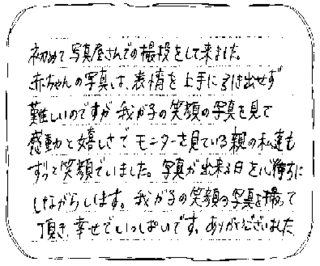 初めて写真屋さんでの撮投をして来ました。
赤ちゃんの写真は、表情を上手に引き出せず
難しいのですが我が子の笑顔の写真を見て
感動と嬉しさでモニターを見ている親の私達も
ずっと笑顔でいました。写真が出来る日を心待ちに
しながらします。我が子の笑顔の写真を撮って
頂き、幸せでいっぱいです。ありがとうございました